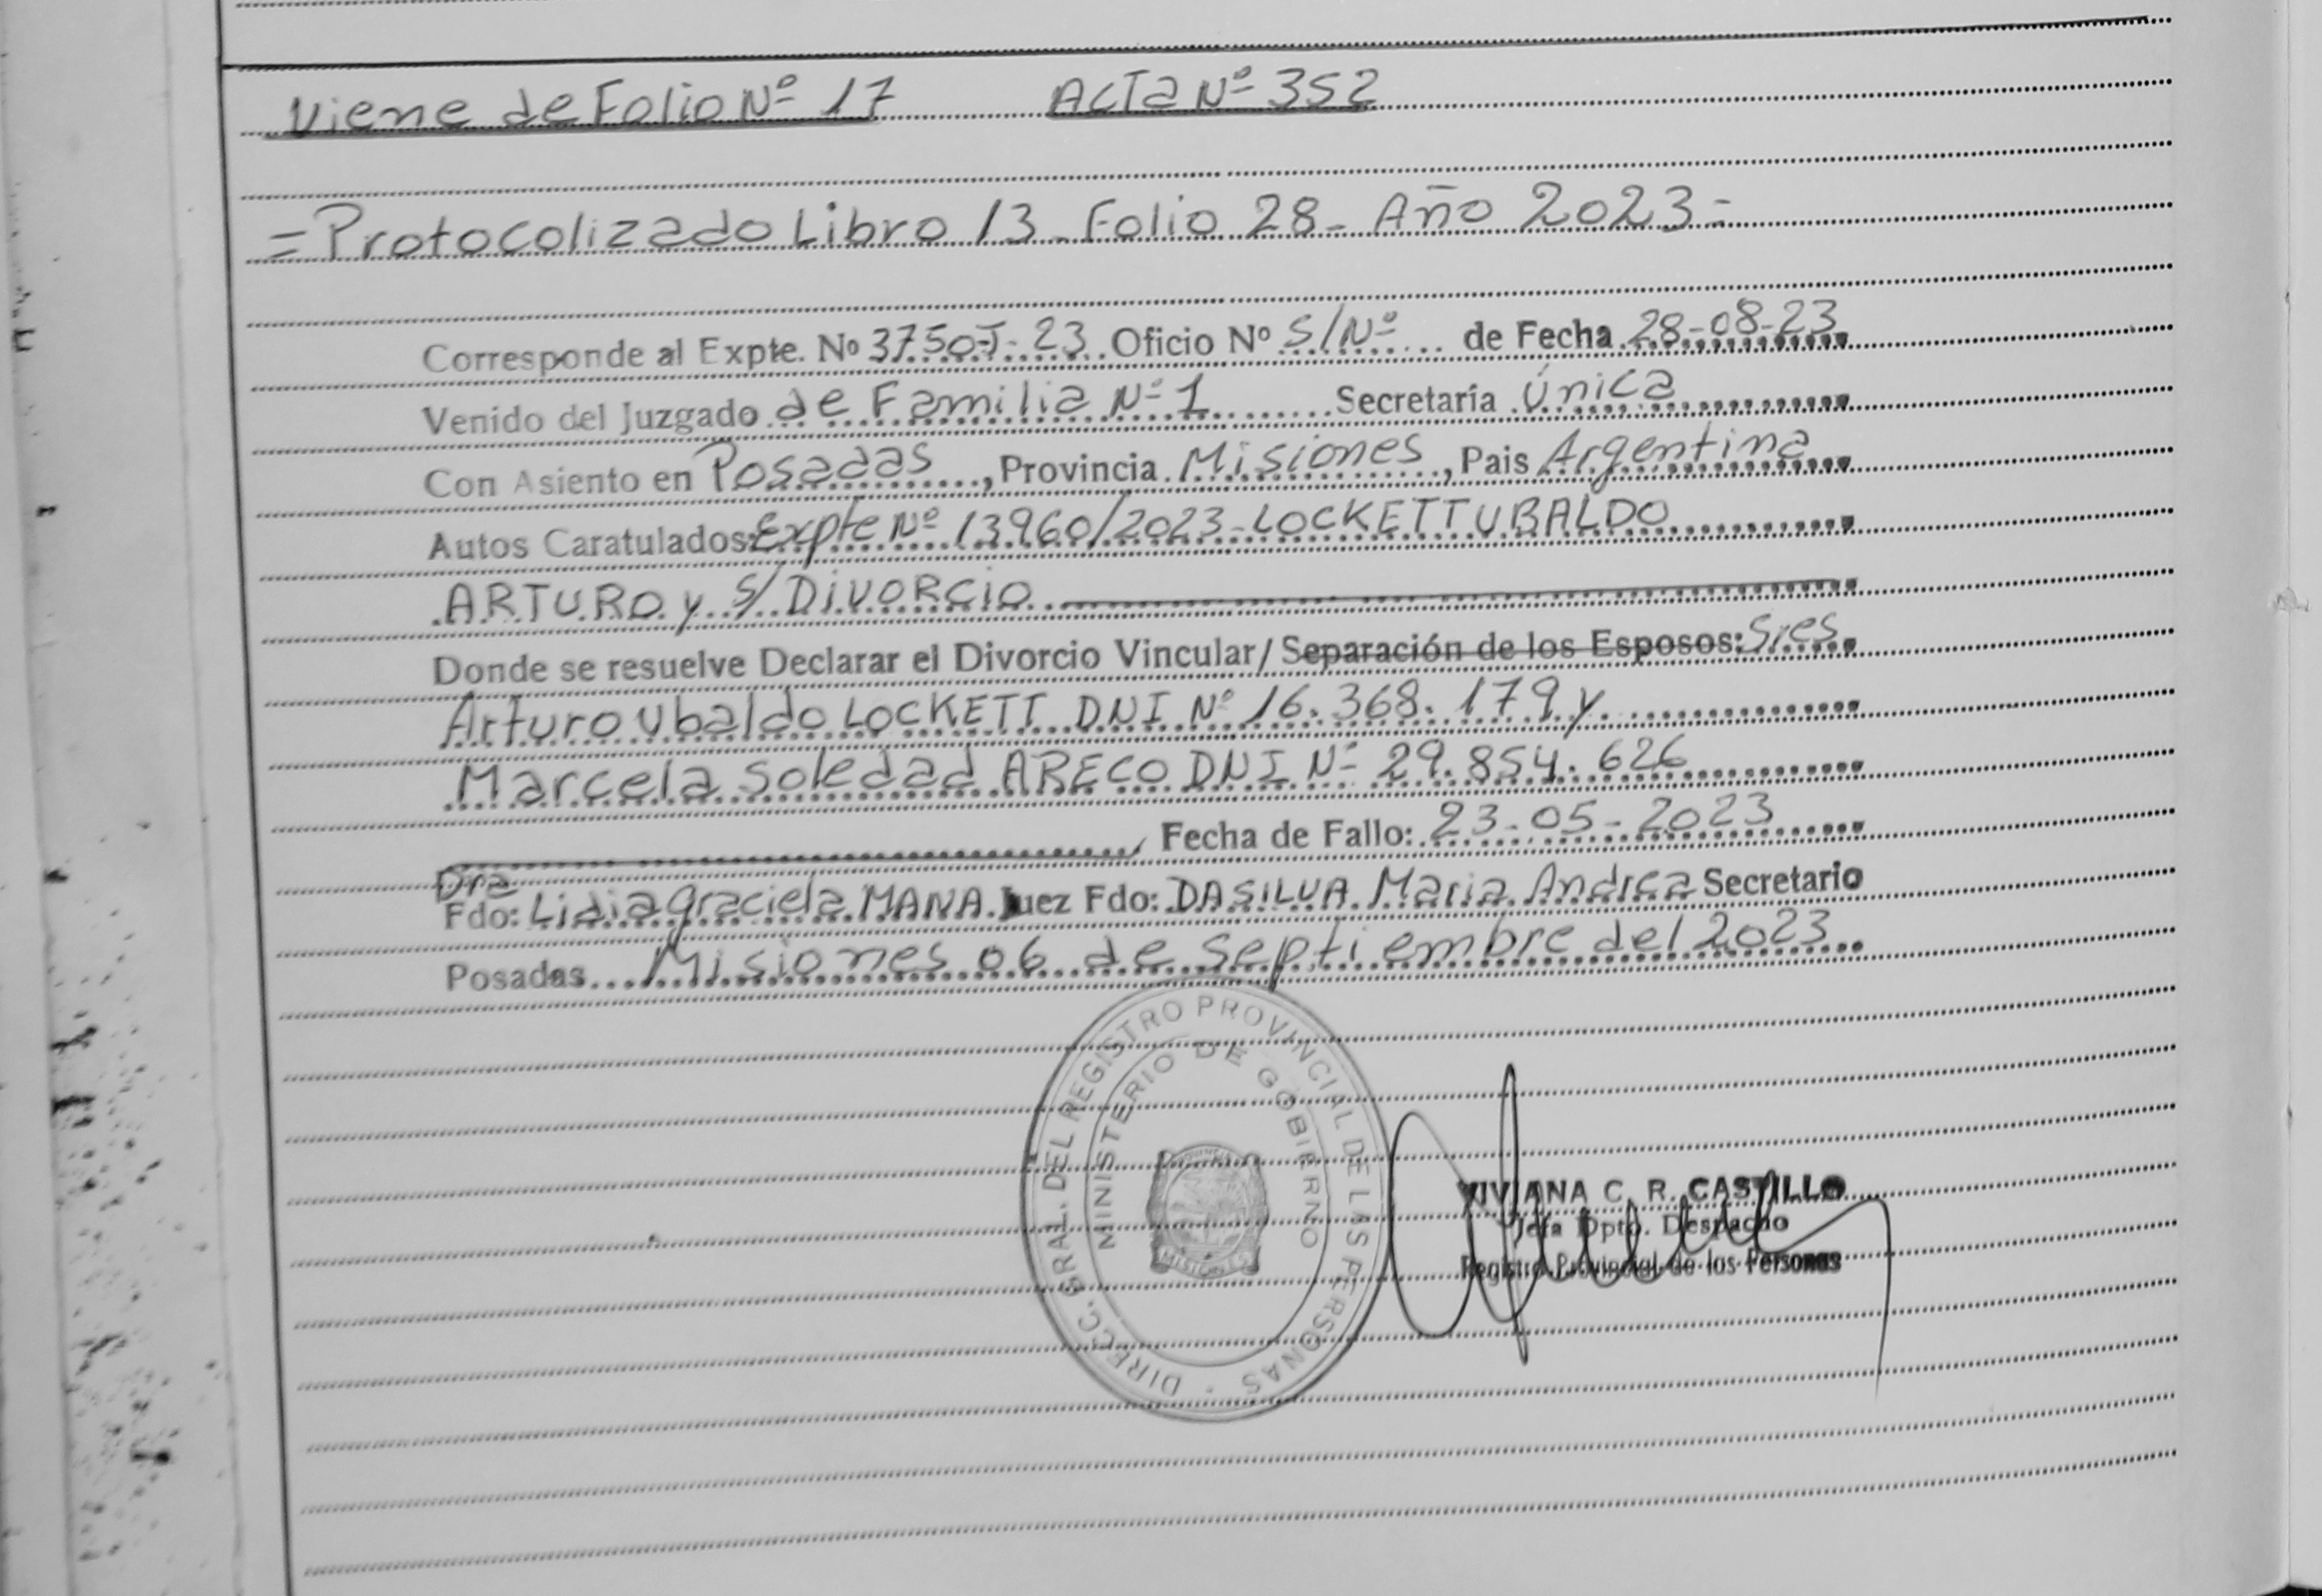 Viene de Folio Nº 17 ACTA Nº 352
=Protocolizado Libro 13_Folio 28_Año 2023=
Corresponde al Expte. Nº 3750-J-23 Oficio Nº S/Nº de Fecha 28-08-23
Venido del Juzgado de Familia Nº 1 Secretaría Única
Con Asiento en Posadas, Provincia Misiones, Pais Argentina
Autos Caratulados: Expte Nº 13960/2023-LOCKETT UBALDO
ARTURO y S/ DIVORCIO
Donde se resuelve Declarar el Divorcio Vincular/ Separación de los Esposos: Sres.
Arturo Ubaldo LOCKETT DNI Nº 16.368.179 y
Marcela Soledad ARECO DNI Nº 29.854.626
, Fecha de Fallo: 23-05-2023
Dra
Fdo: Lidia Graciela MANA Juez Fdo: DASILVA Maria Andrea Secretario
Posadas Misiones 06 de Septiembre del 2023
DIRECC. GRAL. DEL REGISTRO PROVINCIAL DE LAS PERSONAS
MINISTERIO DE GOBIERNO
PROVINCIA
MISIONES
VIVIANA C. R. CASTILLO
Jefa Dpto. Despacho
Registro Provincial de las Personas